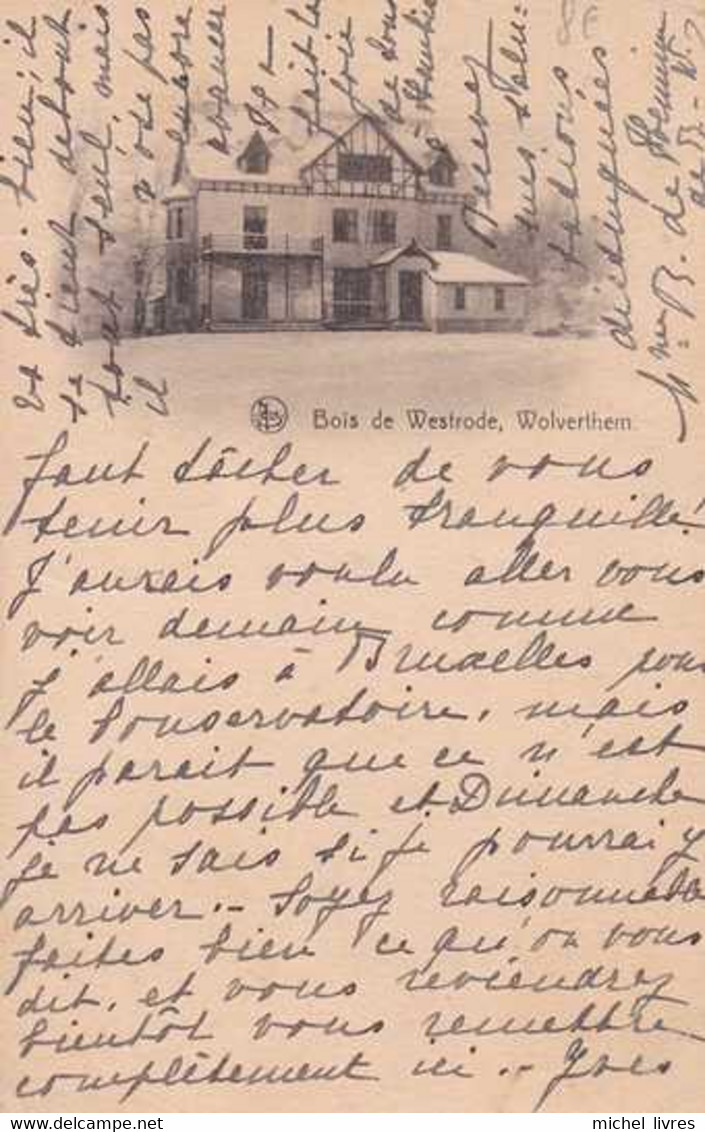 Bois de Westrode, Wolverthem
faut tâcher de vous
tenir plus tranquille!
J'aurais voulu aller vous
voir demain comme
j'allais à Bruxelles pour
le Conservatoire, mais
il parait que ce n'est
pas possible et Dimanche
je ne sais si je pourrai y
arriver. - Soyez raisonnable
faites bien ce qu'on vous
dit, et vous reviendrez
bientôt vous remettre
complètement ici. - Yves
va très bien; il
se tient debout
tout seul, mais
il n'ose pas
encore
avancer
fait la
joie
de tous
Recevez
mes salu-
tations
distinguées
michel livres